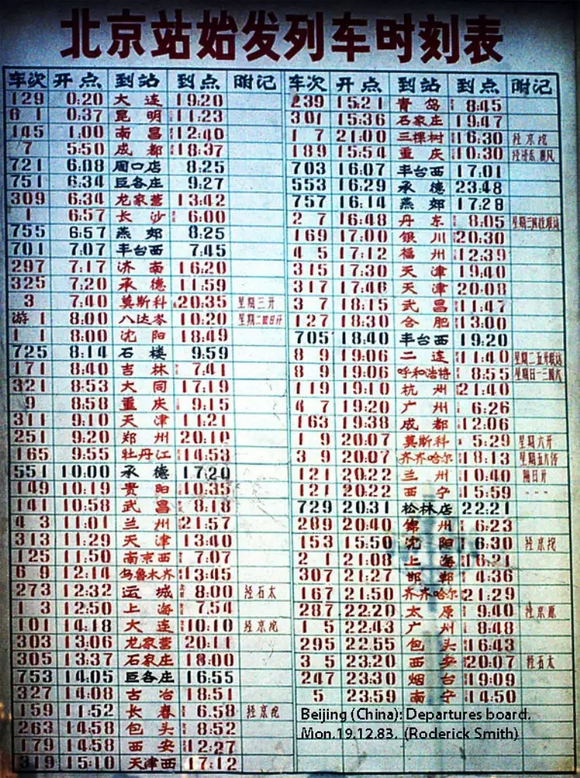 北京站始发列车时刻表
车次 开点 到站 到点 附记 车次 开点 到站 到点 附记
129 0:20 大连 19:20
61 0:37 昆明 11:23
145 1:00 南昌 12:40
7 5:50 成都 18:37
721 6:08 周口店 8:25
751 6:34 巨各庄 9:27
309 6:34 龙家营 13:42
1 6:57 长沙 6:00
755 6:57 燕郊 8:25
701 7:07 丰台西 7:45
297 7:17 济南 16:20
325 7:20 承德 11:59
3 7:40 莫斯科 20:35 星期三开
游1 8:00 八达岭 10:20 星期二四日开
11 8:00 沈阳 18:49
725 8:14 石楼 9:59
171 8:40 吉林 7:41
321 8:53 大同 17:19
9 8:58 重庆 9:15
311 9:10 天津 11:21
251 9:20 郑州 20:10
165 9:55 牡丹江 14:53
551 10:00 承德 17:20
149 10:19 贵阳
141 10:58 武昌 8:18
43 11:01 兰州 21:57
313 11:29 天津 13:40
125 11:50 南京西 7:07
69 12:14 乌鲁木齐 13:45
273 12:32 运城 8:00 经石太
13 12:50 上海 7:54
101 14:18 大连 10:10 经京坨
303 13:06 龙家营 20:11
305 13:37 石家庄 18:00
753 14:05 巨各庄 16:55
327 14:08 古冶 18:51
159 11:52 长春 6:58 经京坨
263 14:58 包头 8:52
179 14:58 西安 12:27
319 15:10 天津西 17:12
239 15:21 青岛 8:45
301 15:36 石家庄 19:47
17 21:00 三棵树 16:30 经京坨
189 15:54 重庆 10:30
703 16:07 丰台西 17:01
553 16:29 承德 23:48
757 16:14 燕郊 17:28
27 16:48 丹东 8:05
169 17:00 银川 20:30
45 17:12 福州 12:39
315 17:30 天津 19:40
317 17:46 天津 20:08
37 18:15 武昌 11:47
127 18:30 合肥 13:00
705 18:40 丰台西 19:20
89 19:06 二连 11:40
89 19:06 呼和浩特 8:55
119 19:10 杭州 21:40
47 19:20 广州 6:26
163 19:38 成都 12:06
19 20:07 莫斯科 5:29 星期六开
39 20:07 齐齐哈尔 18:13
121 20:22 兰州 10:40 隔日开
121 20:22 西宁 15:59
729 20:31 松林店 22:21
289 20:40 锦州 6:23
153 15:50 沈阳 6:30 经京坨
21 21:08 上海 16:21
307 21:27 邯郸 4:36
167 21:50 齐齐哈尔 21:29
287 22:20 太原 9:40 经京原
15 22:43 广州 8:48
295 22:55 包头 16:43
35 23:20 西安 20:07 经石太
247 23:30 烟台 19:09
5 23:59 南宁 14:50
Beijing (China): Departures board.
Mon.19.12.83. (Roderick Smith)